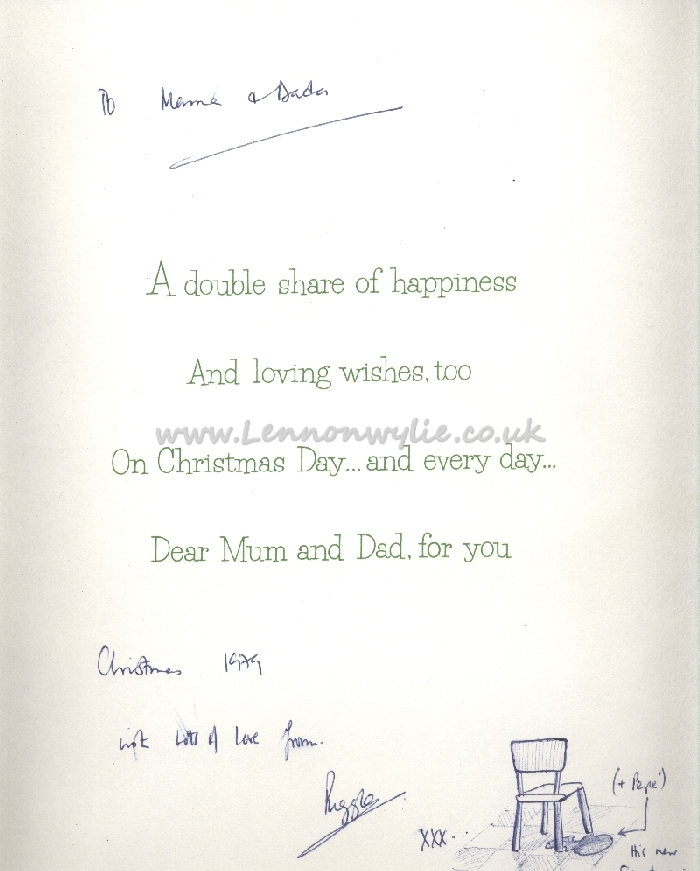 To Mama & Dada
A double share of happiness
And loving wishes, too
www.Lennonwylie.co.uk
On Christmas Day... and every day...
Dear Mum and Dad, for you
Christmas 1979
with lots of love from.
XXX..
His new